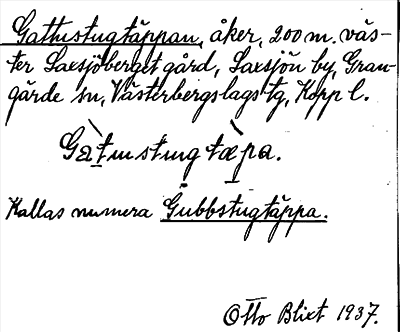 Gattustugtäppan, åker, 200 m. väs-
ter Saxsjöberget gård, Saxsjön by, Gran-
gärde sn, Västerbergslags tg, Kopp l.
Kallas numera Gubbstugtäppa.
Otto Blixt 1937.